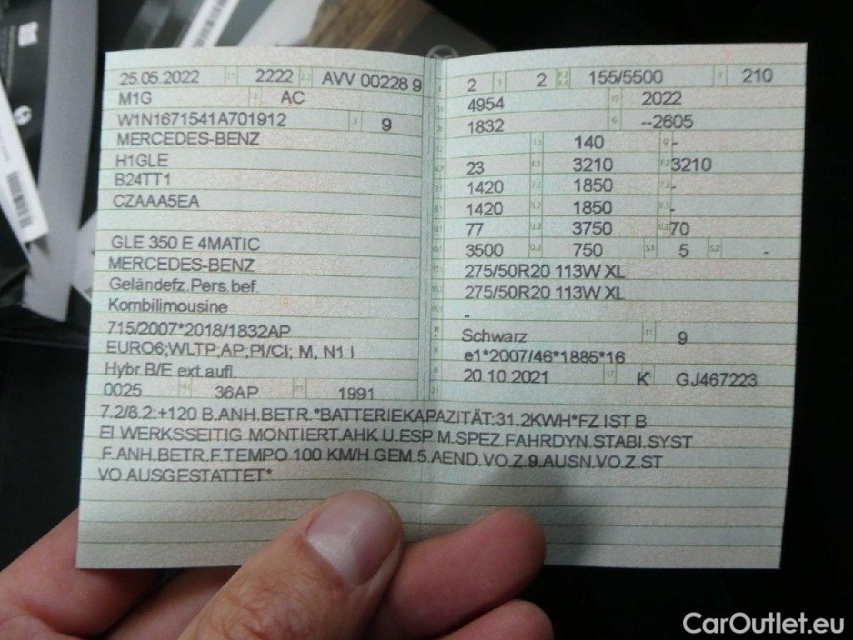 25.05.2022 2222 AVV 00228 9
M1G AC
W1N1671541A701912 9
MERCEDES-BENZ
H1GLE
B24TT1
CZAAA5EA
GLE 350 E 4MATIC
MERCEDES-BENZ
Geländefz.Pers.bef.
Kombilimousine
715/2007*2018/1832AP
EURO6;WLTP;AP;PI/CI; M, N1 I
Hybr.B/E ext.aufl.
0025 36AP 1991
2 2 155/5500 210
4954 2022
1832 --2605
140 -
23 3210 3210
1420 1850 -
1420 1850 -
77 3750 70
3500 750 5 -
275/50R20 113W XL
275/50R20 113W XL
-
Schwarz 9
e1*2007/46*1885*16
20.10.2021 K GJ467223
7.2/8.2:+120 B.ANH.BETR.*BATTERIEKAPAZITÄT:31.2KWH*FZ IST B
EI WERKSSEITIG MONTIERT.AHK U.ESP M.SPEZ.FAHRDYN.STABI.SYST
.F.ANH.BETR.F.TEMPO 100 KM/H GEM.5.AEND.VO.Z.9.AUSN.VO.Z.ST
VO AUSGESTATTET*
CarOutlet.eu